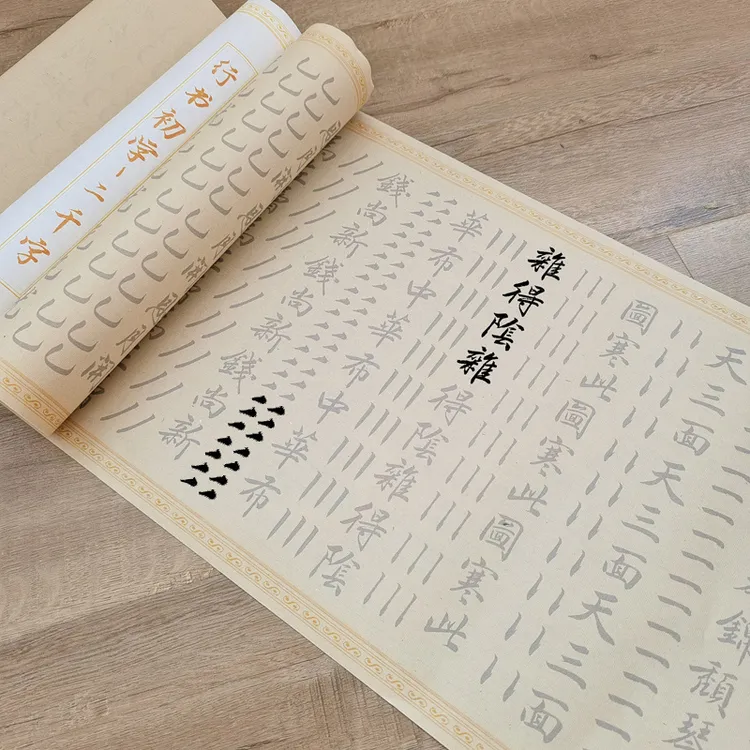 行书初字丶二千字
錦
琴
天三面天三面天三面
圖寒此圖寒此圖寒此
雜得陰雜得陰雜得陰
華布中華布中華布
錢尚新錢尚新錢尚新